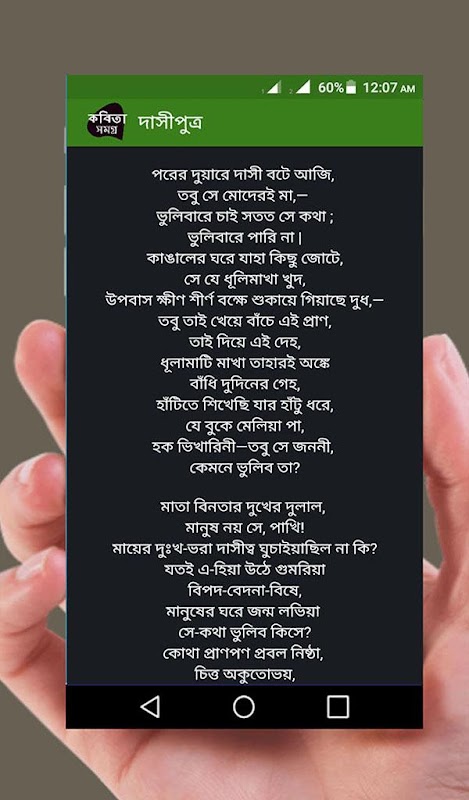 60% 12:07 AM
কবিতা
সমগ্র
দাসীপুত্র
পরের দুয়ারে দাসী বটে আজি,
তবু সে মোদেরই মা,—
ভুলিবারে চাই সতত সে কথা ;
ভুলিবারে পারি না |
কাঙালের ঘরে যাহা কিছু জোটে,
সে যে ধূলিমাখা খুদ,
উপবাস ক্ষীণ শীর্ণ বক্ষে শুকায়ে গিয়াছে দুধ,—
তবু তাই খেয়ে বাঁচে এই প্রাণ,
তাই দিয়ে এই দেহ,
ধূলামাটি মাখা তাহারই অঙ্কে
বাঁধি দুদিনের গেহ,
হাঁটিতে শিখেছি যার হাঁটু ধরে,
যে বুকে মেলিয়া পা,
হক ভিখারিনী—তবু সে জননী,
কেমনে ভুলিব তা?
মাতা বিনতার দুখের দুলাল,
মানুষ নয় সে, পাখি!
মায়ের দুঃখ-ভরা দাসীত্ব ঘুচাইয়াছিল না কি?
যতই এ-হিয়া উঠে গুমরিয়া
বিপদ-বেদনা-বিষে,
মানুষের ঘরে জন্ম লভিয়া
সে-কথা ভুলিব কিসে?
কোথা প্রাণপণ প্রবল নিষ্ঠা,
চিত্ত অকুতোভয়,